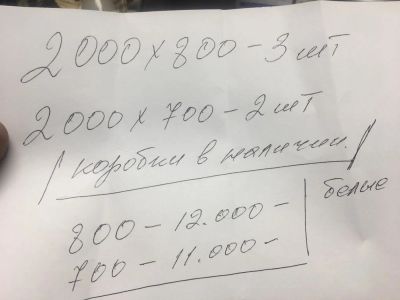 2000х800-3шт
2000х700-2шт
/коробки в наличии./
800-12.000-
700-11.000-
белые